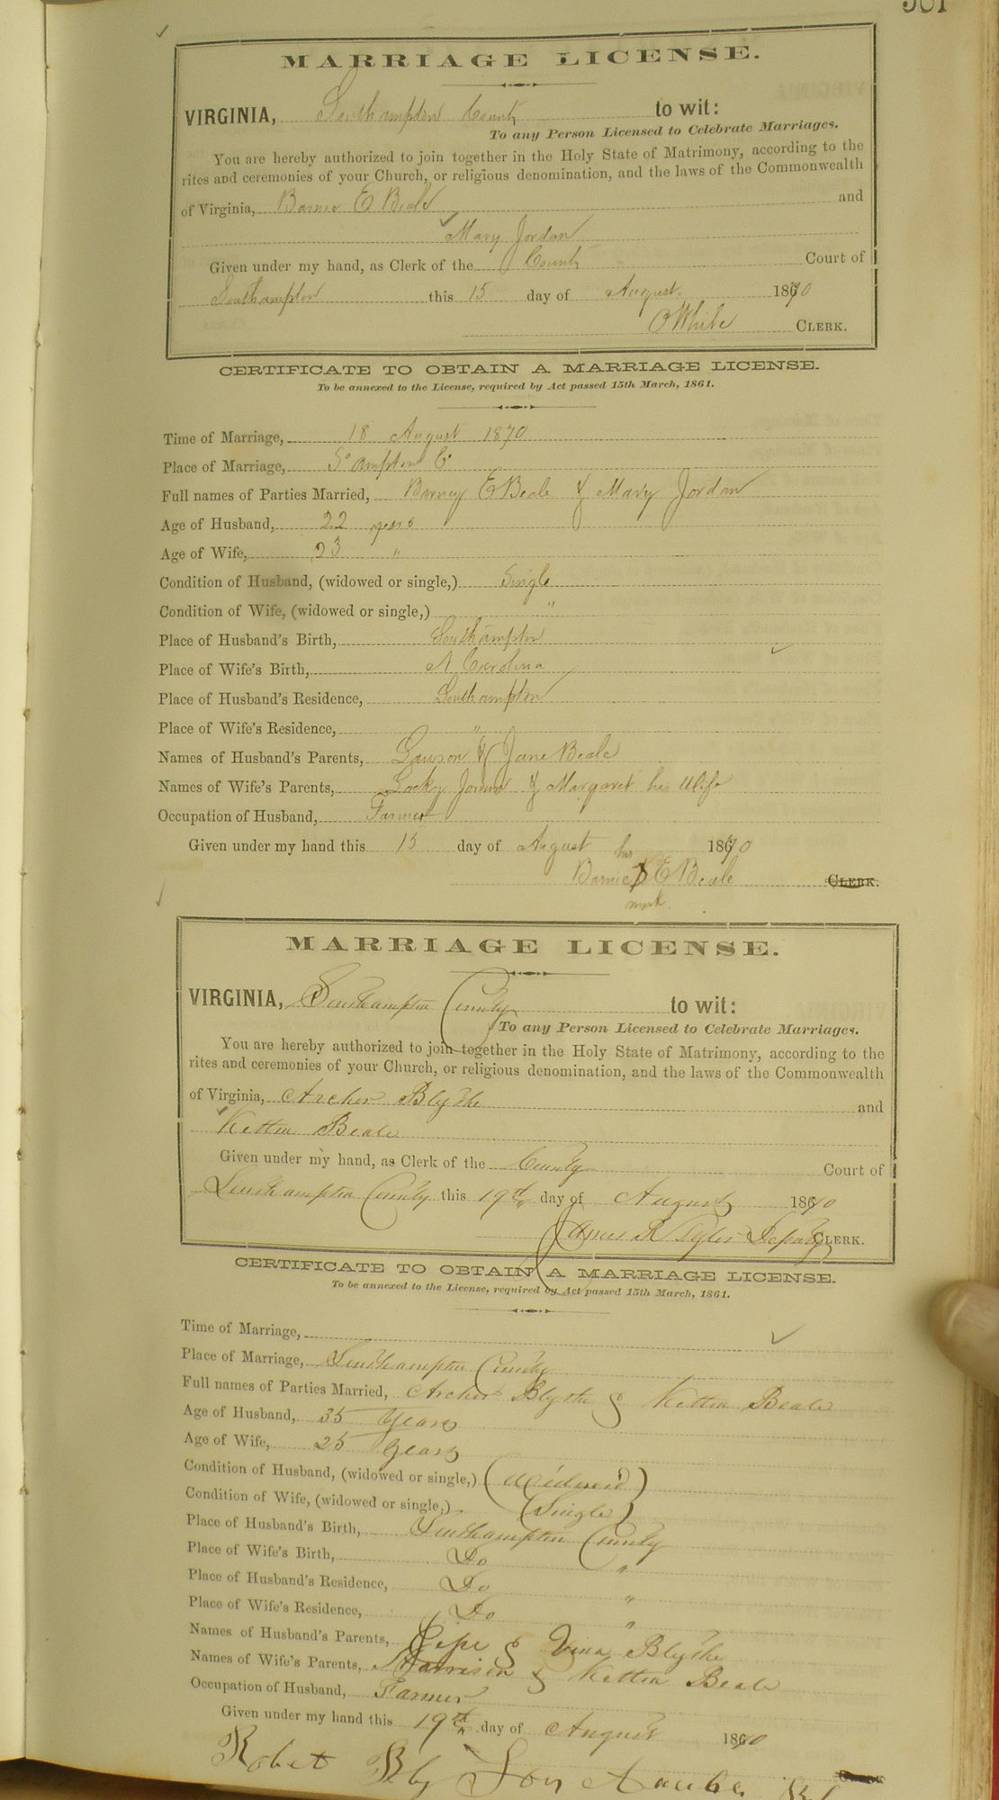 MARRIAGE LICENSE.
VIRGINIA, Southampton County to wit:
To any Person Licensed to Celebrate Marriages.
You are hereby authorized to join together in the Holy State of Matrimony, according to the
rites and ceremonies of your Church, or religious denomination, and the laws of the Commonwealth
of Virginia, E Beale and
Mary Jordan
Given under my hand, as Clerk of the County Court of
Southampton this 15 day of August 1870
O White CLERK.
CERTIFICATE TO OBTAIN A MARRIAGE LICENSE.
To be annexed to the License, required by Act passed 15th March, 1861.
Time of Marriage, 18 August 1870
Place of Marriage, So ampton Co
Full names of Parties Married, Barney E Beale & Mary Jordan
Age of Husband, 22 years
Age of Wife, 23 "
Condition of Husband, (widowed or single,) Single
Condition of Wife, (widowed or single,) "
Place of Husband's Birth, Southampton
Place of Wife's Birth, N Carolina
Place of Husband's Residence, Southampton
Place of Wife's Residence, "
Names of Husband's Parents, Lawson & Jane Beale
Names of Wife's Parents, & Margaret his Wife
Occupation of Husband, Farmer
Given under my hand this 15 day of August 1870
his
Barnie X E Beale CLERK.
mark.
MARRIAGE LICENSE.
VIRGINIA, Southampton County to wit:
To any Person Licensed to Celebrate Marriages.
You are hereby authorized to join together in the Holy State of Matrimony, according to the
rites and ceremonies of your Church, or religious denomination, and the laws of the Commonwealth
of Virginia, Archer Blythe and
Kittia Beale
Given under my hand, as Clerk of the County Court of
Southampton County this 19th day of August 1870
James R Tyler Deputy CLERK.
CERTIFICATE TO OBTAIN A MARRIAGE LICENSE.
To be annexed to the License, required by Act passed 15th March, 1861.
Time of Marriage,
Place of Marriage, Southampton County
Full names of Parties Married, Archer Blythe & Kittia Beale
Age of Husband, 35 Years
Age of Wife, 25 Years
Condition of Husband, (widowed or single,) (Widowed)
Condition of Wife, (widowed or single,) (Single)
Place of Husband's Birth, Southampton County
Place of Wife's Birth, Do "
Place of Husband's Residence, Do "
Place of Wife's Residence, Do "
Names of Husband's Parents, & Blythe
Names of Wife's Parents, Harrison & Kittia Beale
Occupation of Husband, Farmer
Given under my hand this 19th day of August 1870
CLERK